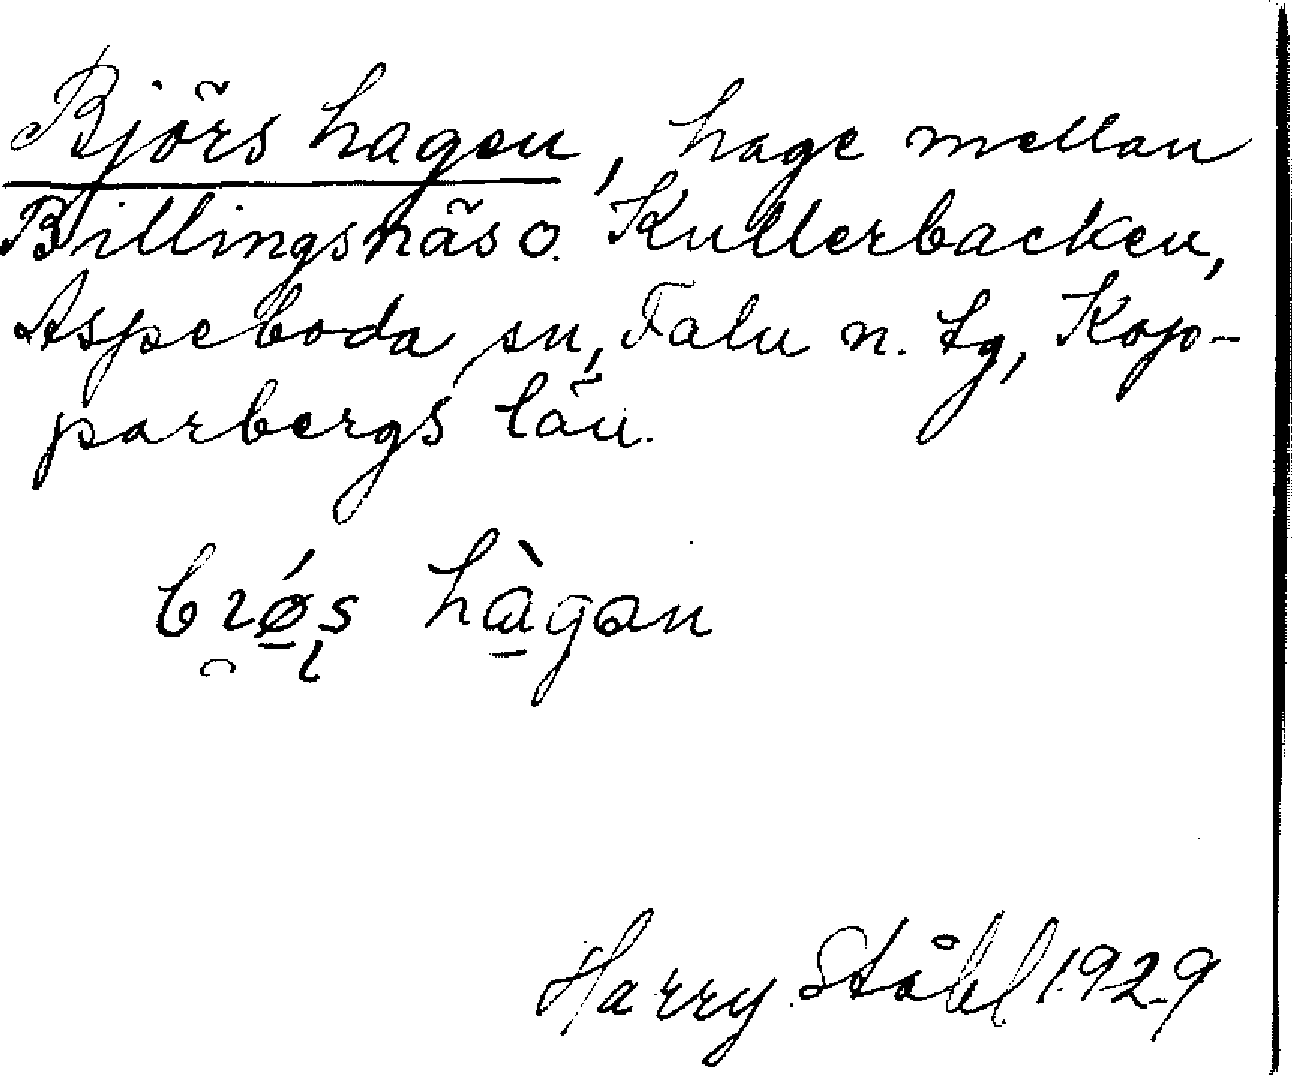 Björs hagen, hage mellan
Billingsnäs o. Kullerbacken,
Aspeboda sn, Falu n. tg, Kop-
parbergs län.
hàgan
Harry Ståhl 1929